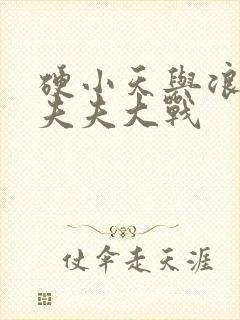 硬小天與浪
夫夫大戰
仗伞走天涯